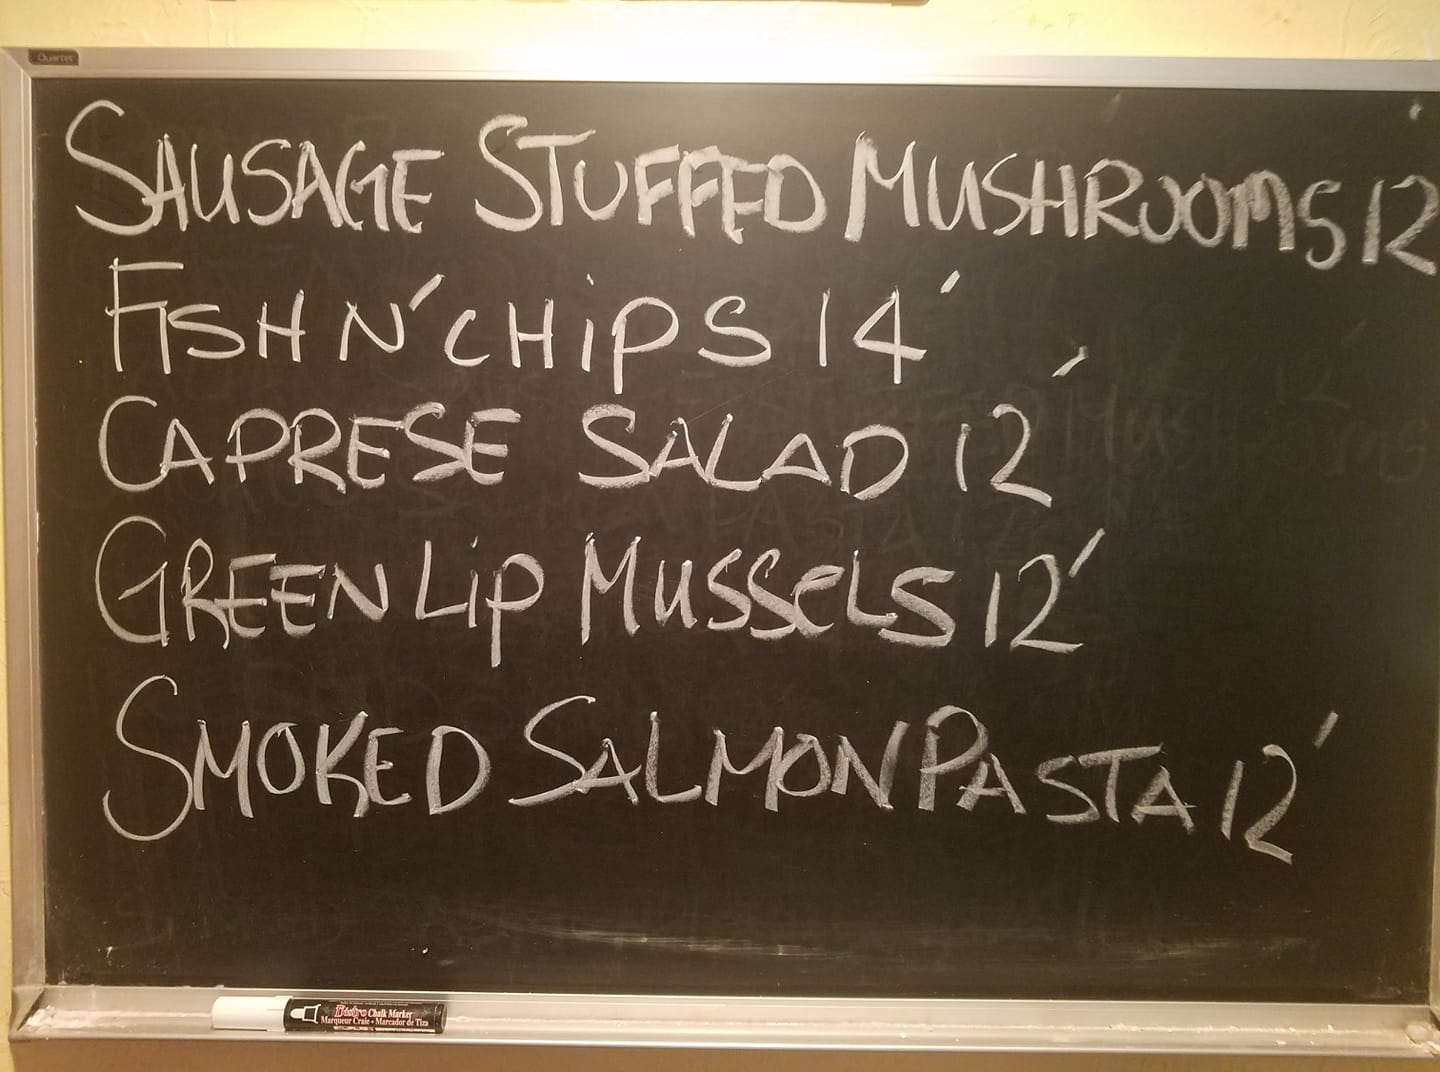 Quartet
SAUSAGE STUFFED MUSHROOMS 12'
FISH N' CHiPS 14'
CAPRESE SALAD 12'
GREEN LiP MUSSeLS 12'
SMOKED SALMON PASTA 12'
Bistro Chalk Marker
Marqueur Craie • Marcador de Tiza